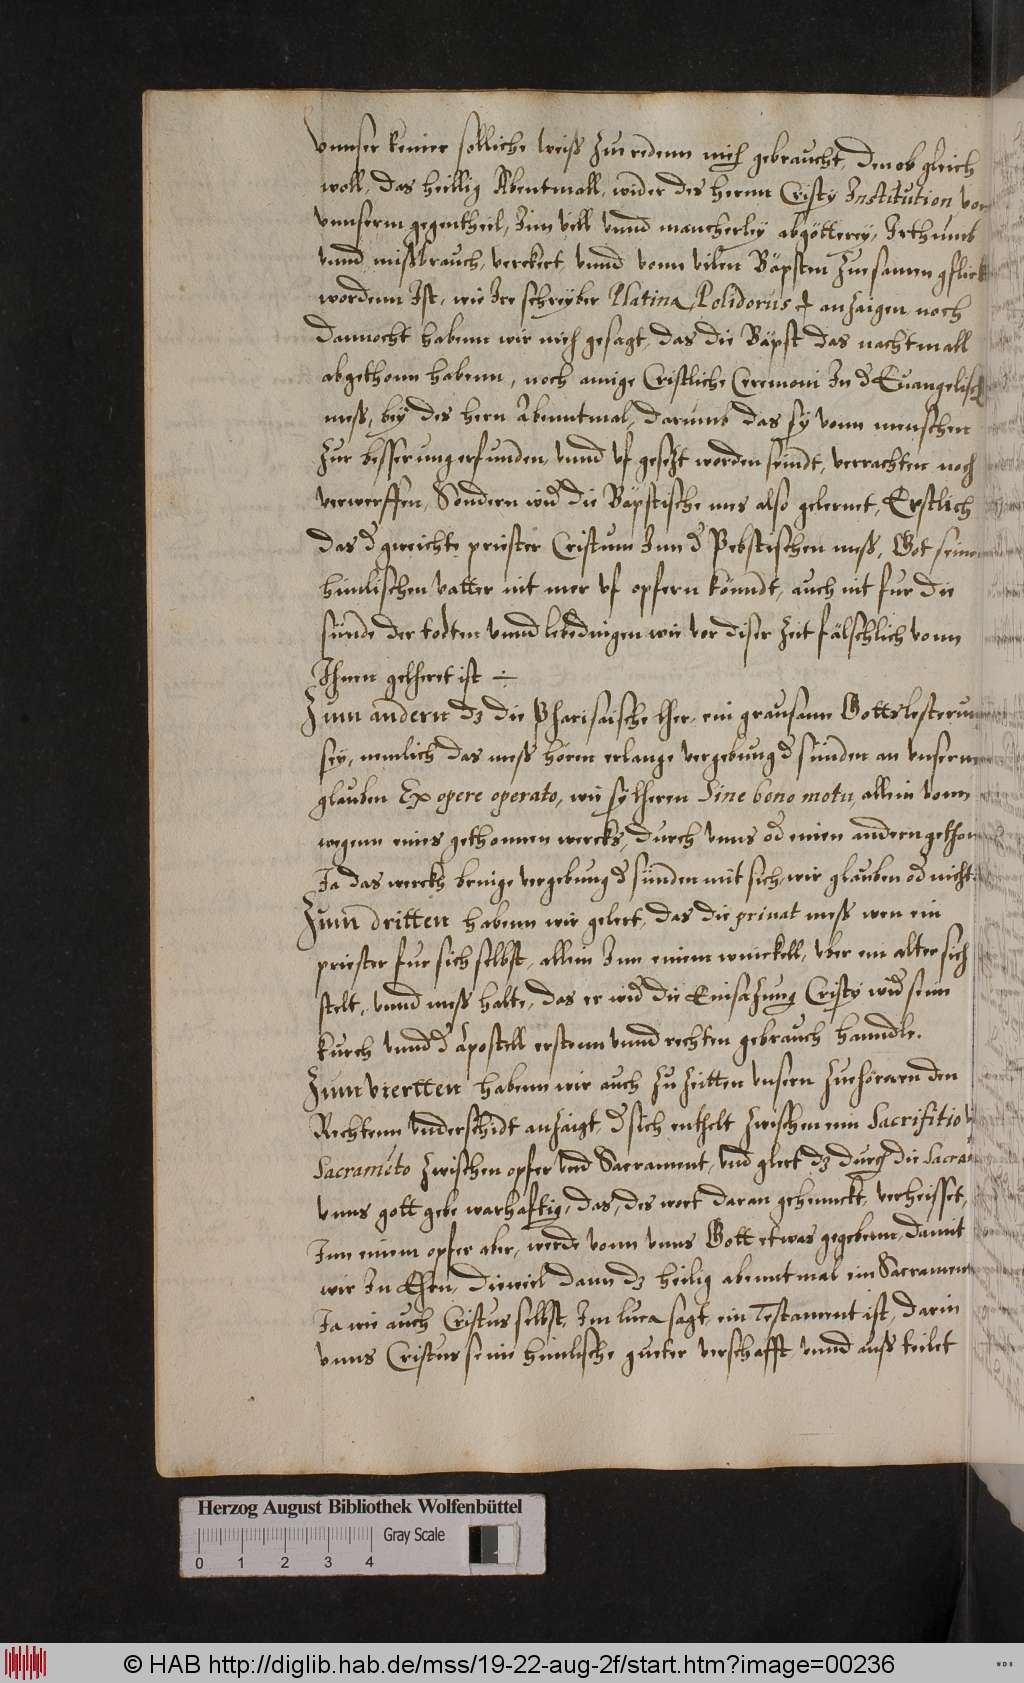 vnnser keiner solliche weiß zu redenn nich gebraucht, den ob gleich
woll, das heillig Abentmall, wider des hernn Cristy Institution von
vnnserm gegentheil, Inn vill vnnd mancherley abgötterey, Irthumb
vnnd mißbrauch, verckert vnnd vonn vilen Bäpsten zuesamen gflickt
wordenn Ist, wie Ire schreyber Platina, Polidorus anzaigen noch
dannocht habenn wir nich gesagt, das die Bäpst das nachtmall
abgethonn habenn, noch ainige Cristliche Ceremoni In d Euangelisch
meß, bey des hern Abenntmal, darumb das sy vonn menschen
zur besserung erfunden, vnnd vf gesetzt worden seindt, verrachten noch
verwerffen, Sondern wid die Bäpstische mes also gelernet, Erstlich
das d gweichte priester Cristum Inn d Pebstischen meß, Got seinem
himlischen vatter nit mer vf opfern könndt, auch nit fur die
sünde der todten vnnd lebedingen wie vor diser zeit fälschlich vonn
Ihnen gelheret ist ÷
Zum andern dz die Pharisaische lher, ein grausame Gottslesterung
sey, nemlich das meß hören erlange vergebung d sünden an vnserm
glauben Ex opere operato, wie sy lheren Sine bono motu, allein vonn
wegenn eines gethonnen wercks, durch vnns od einen andern gethon
Ja das werckh bringe vergebung d sünden mit sich, wir glauben od nicht.
Zum dritten habenn wir gelert, das die priuat meß wen ein
priester fur sich selbst, allein Inn einem winckell, vber ein alter sich
stelt, vnnd meß halte, das er wid die Einsatzung Cristy wid sein
kirch vnnd d Apostell erstenn vnnd rechten gebrauch hanndle.
Zum viertten habenn wir auch zu zeitten vnsern zuehörern den
Rechtenn vnderschidt anzaigt, d sich enthelt zwischen eim Sacrifitio v
Sacrameto zwischen opfer vnd Sacrament, vnd glert dz durch die Sacra
vnns gott gebe warhafftig, das, des wort daran gehennckt, verheisset,
Inn einem opfer aber, werde vonn vnns Gott etwas gegebenn, damit
wir In Ehren, dieweil dann dz heilig abenntmal ein Sacrament
Ja wie auch Cristus selbst, Im luca sagt, ein Testament ist, darin
vnns Cristus seine himlische gueter verschafft vnnd auß teilet
Herzog August Bibliothek Wolfenbüttel
Gray Scale
0 1 2 3 4
© HAB http://diglib.hab.de/mss/19-22-aug-2f/start.htm?image=00236